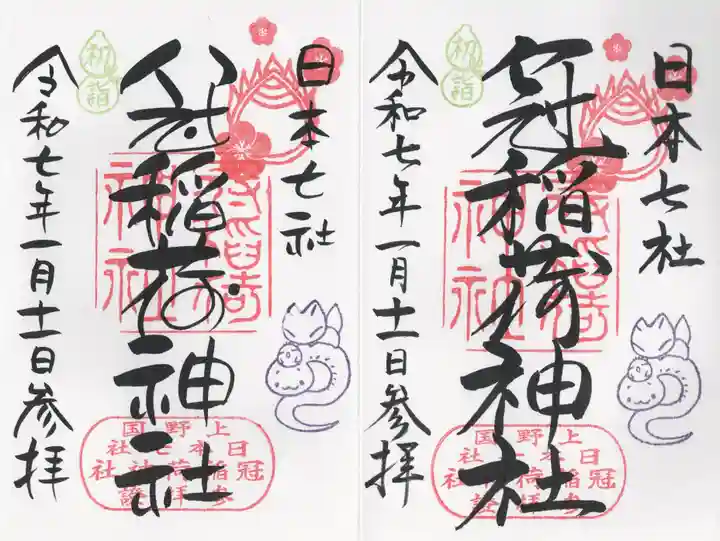 日本七社
冠稲荷神社
初詣
令和七年一月十一日参拝
上野国
日本七社
冠稲荷神社
参拝證
日本七社
冠稲荷神社
初詣
令和七年一月十一日参拝
上野国
日本七社
冠稲荷神社
参拝證